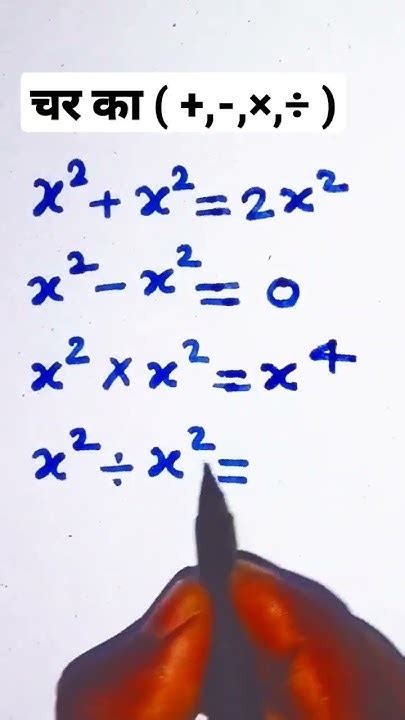 चर का ( +,-,×,÷ )
x² + x² = 2x²
x² - x² = 0
x² × x² = x⁴
x² ÷ x² =